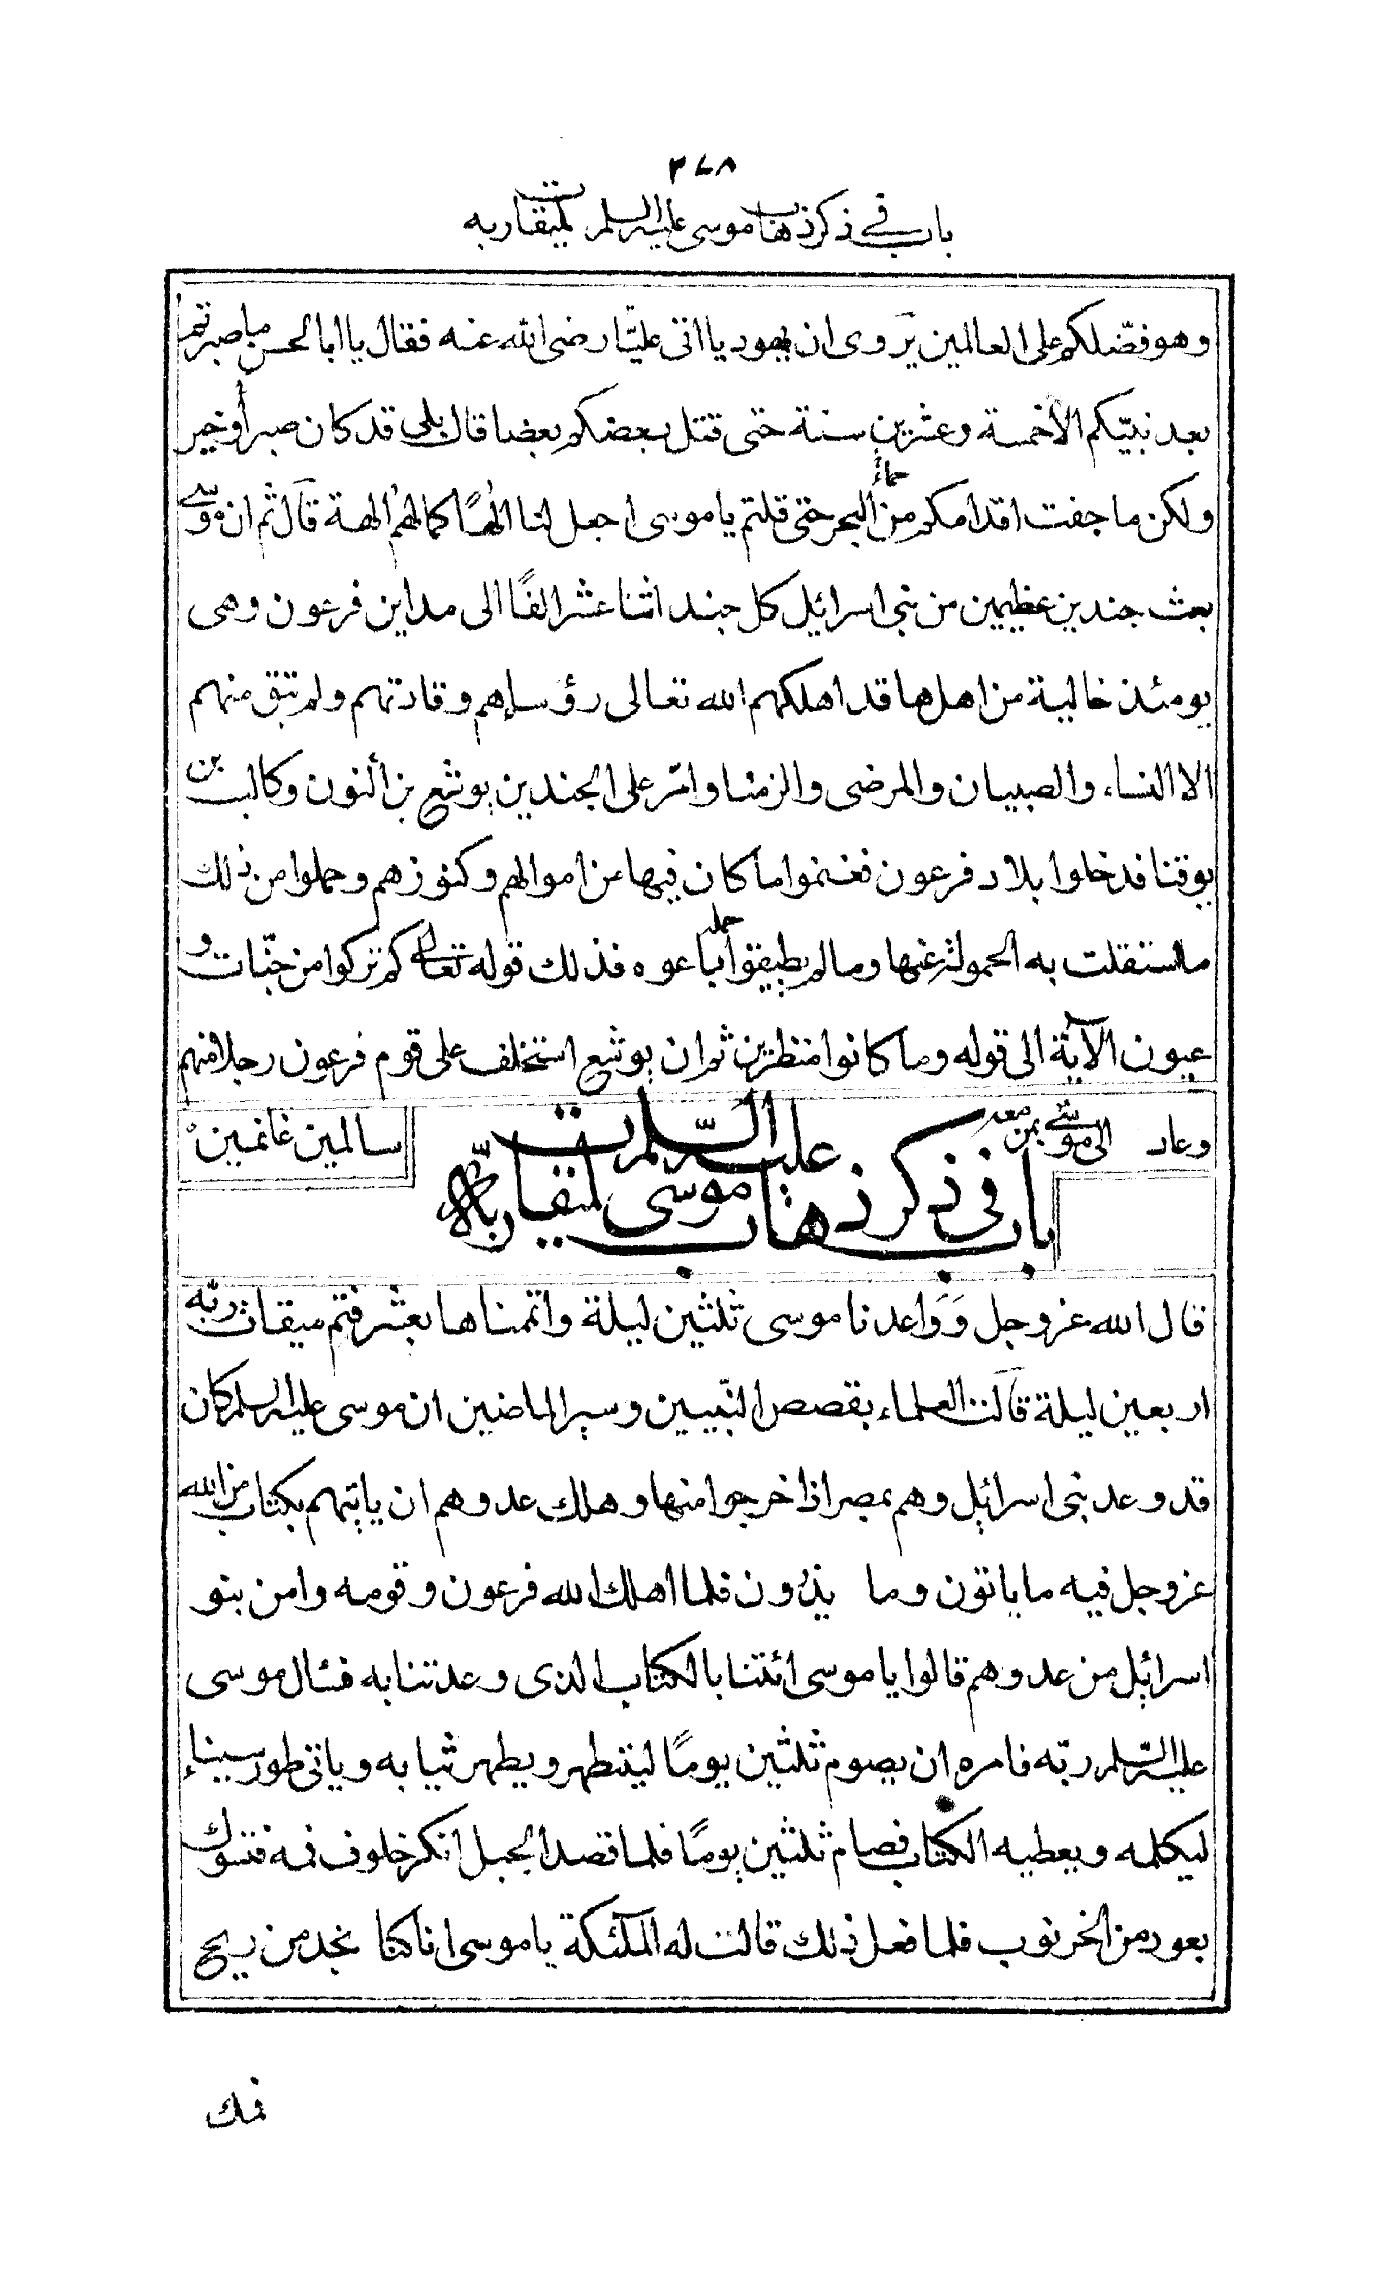 ٣٧٨
باب في ذكر ذهاب موسى عليه السلم لميقات ربه
وهو فضّلكم على العالمين يروى ان يهوديا اتى عليّا رضى الله عنه فقال يا ابا الحسن ما صبرتم
بعد نبيّكم الا خمسة وعشرين سنة حتى قتل بعضكم بعضا قال بلى قد كان صبرا وخير
ولكن ما جفت اقدامكم من حمأ البحر حتى قلتم يا موسى اجعل لنا الٰهًا كما لهم الهة قال ثم ان موسى
بعث جندين عظيمين من بنى اسرائيل كل جند اثنا عشر الفًا الى مداين فرعون وهى
يومئذ خالية من اهلها قد اهلكهم الله تعالى رؤساءهم وقادتهم ولم تبق منهم
الا النساء والصبيان والمرضى والزمنا وامّر على الجندين يوشع بن ألنون وكالب بن
يوقنا فدخلوا بلاد فرعون فغنموا ما كان فيها من اموالهم وكنوزهم وحملوا من ذلك
ما استقلت به الحمولة عنها وما لم يطيقوا حمله باعوه فذلك قوله تعالى كم تركوا من جنّات و
عيون الآية الى قوله وما كانوا منظرين ثم ان يوشع استخلف على قوم فرعون رجلا منهم
وعاد الى موسى بمن معه سالمين غانمين
باب في ذكر ذهاب موسى عليه السّلم لميقات ربّه
قال الله عز وجل وَوَاعدنا موسى ثلثين ليلة واتممناها بعشر فتم ميقات ربّه
اربعين ليلة قالت العلماء بقصص النّبيين وسير الماضين ان موسى عليه السلم كان
قد وعد بنى اسرائيل وهم بمصر اذا خرجوا منها وهلك عدوهم ان ياتيهم بكتاب من الله
عز وجل فيه ما ياتون وما يذرون فلما اهلك الله فرعون وقومه وامن بنو
اسرائيل من عدوهم قالوا يا موسى ائتنا بالكتاب الذى وعدتنا به فسال موسى
عليه السّلم ربّه فامره ان يصوم ثلثين يومًا ليتطهر ويطهر ثيابه وياتى طور سيناء
ليكلمه ويعطيه الكتاب فصام ثلثين يومًا فلما قصد الجبل انكر خلوف فمه فتسوك
بعود من الخرنوب فلما فعل ذلك قالت له الملٓئكة يا موسى انا كنا نجد من ريح
فمك